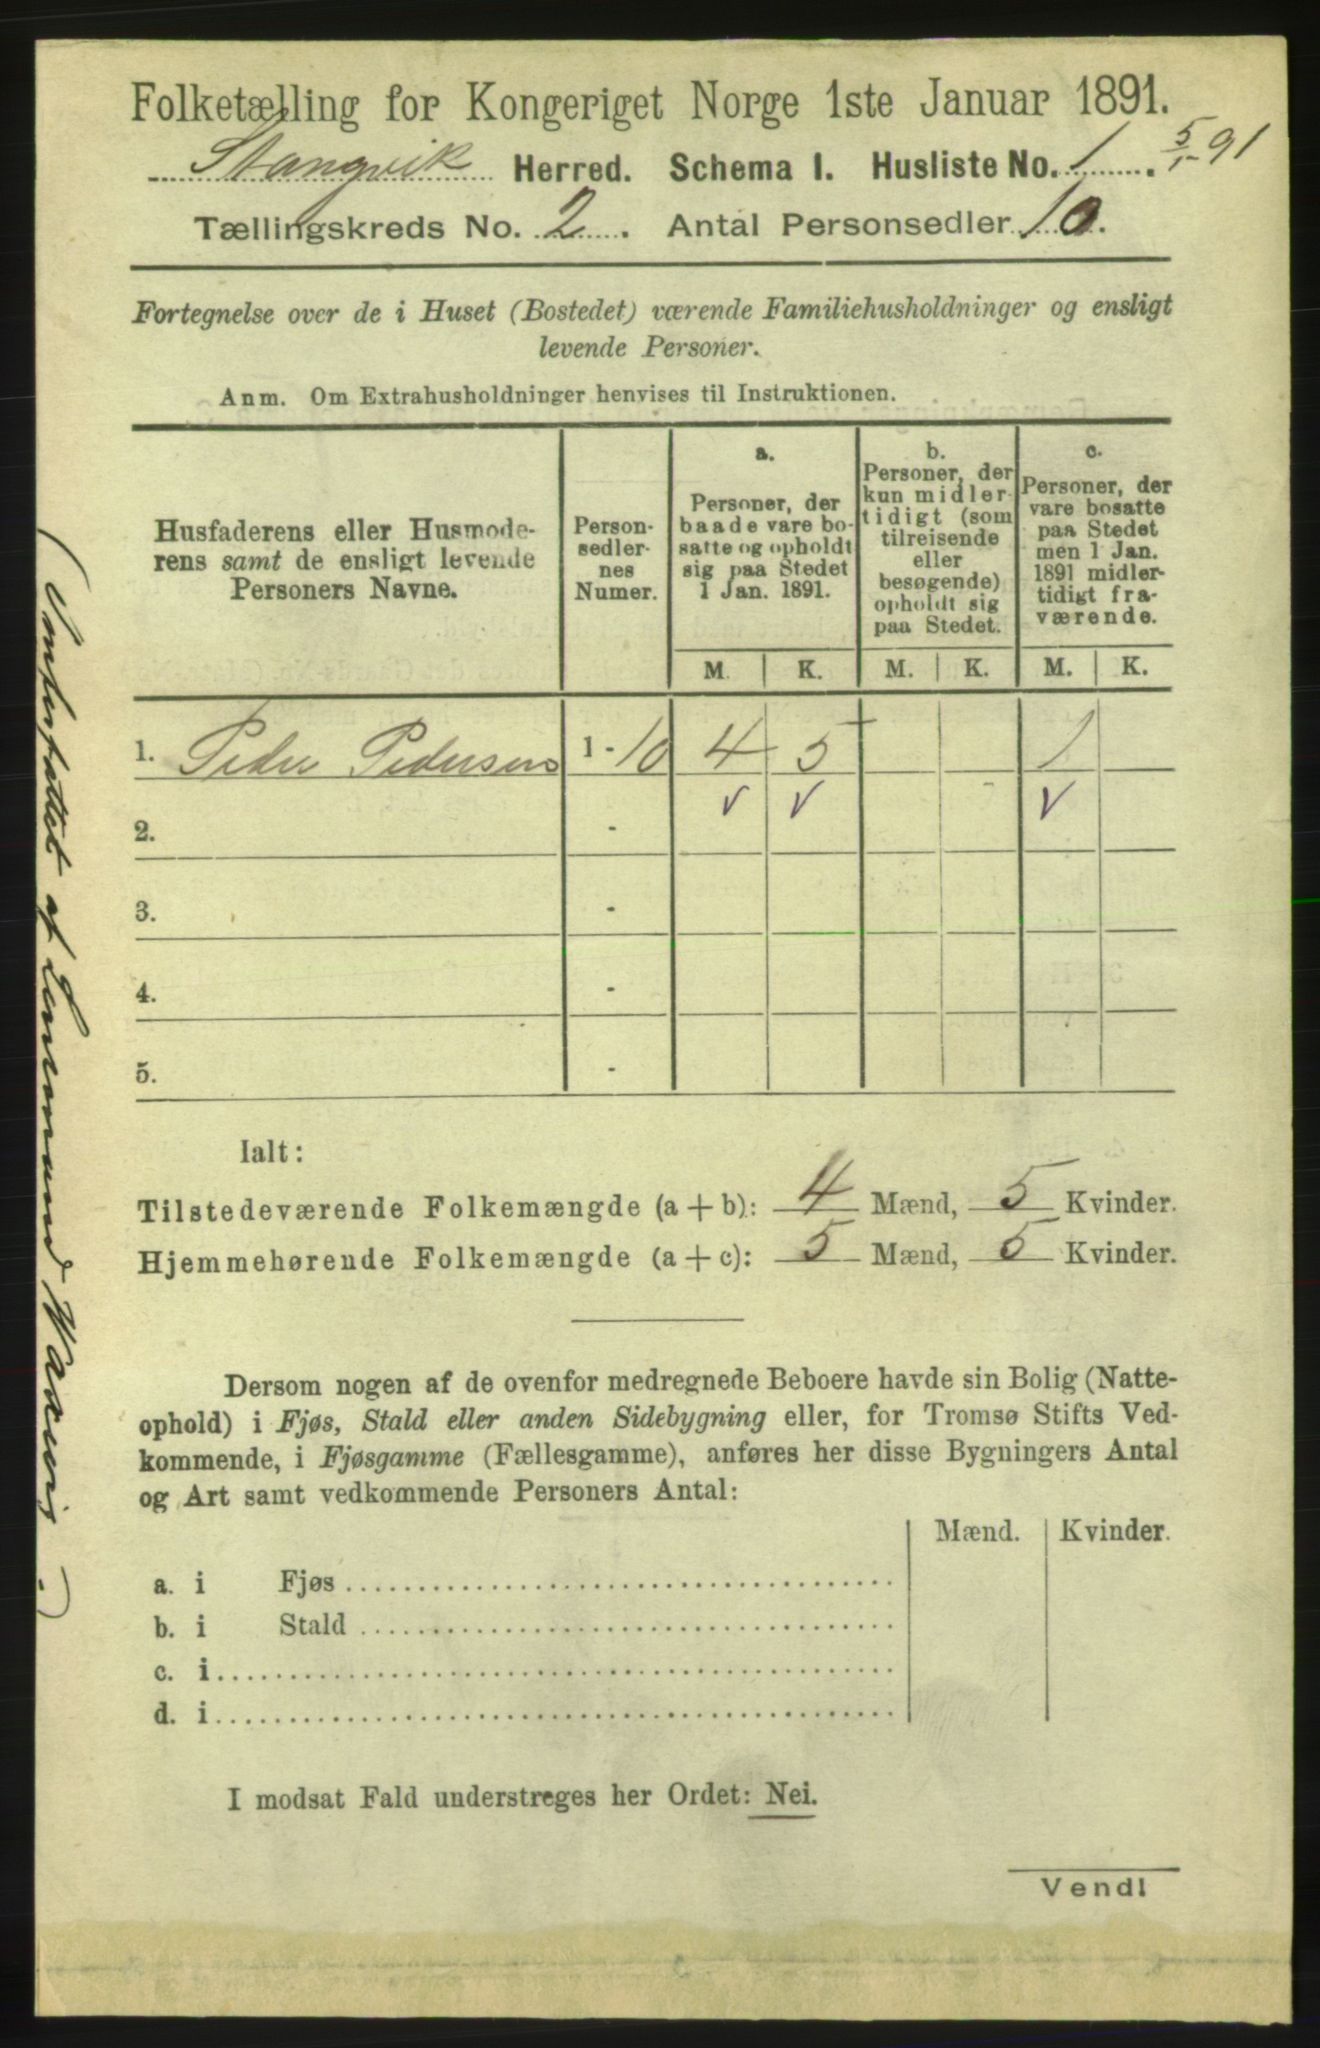 Folketælling for Kongeriget Norge 1ste Januar 1891.
Stangvik Herred. Schema I. Husliste No. 1. 5/1-91
Tællingskreds No. 2. Antal Personsedler 10.
Fortegnelse over de i Huset (Bostedet) værende Familiehusholdninger og ensligt
levende Personer.
Anm. Om Extrahusholdninger henvises til Instruktionen.
Husfaderens eller Husmode-
rens samt de ensligt levende
Personers Navne.
Person-
sedler-
nes
Numer.
a.
Personer, der
baade vare bo-
satte og opholdt
sig paa Stedet
1 Jan. 1891.
b.
Personer, der
kun midler-
tidigt (som
tilreisende
eller
besøgende)
opholdt sig
paa Stedet.
c.
Personer, der
vare bosatte
paa Stedet
men 1 Jan.
1891 midler-
tidigt fra-
værende.
M. K. M. K. M. K.
1. Peder Pedersen 1 - 10 4 5 1
2. -
3. -
4. -
5. -
Ialt:
Tilstedeværende Folkemængde (a + b): 4 Mænd, 5 Kvinder.
Hjemmehørende Folkemængde (a + c): 5 Mænd, 5 Kvinder.
Dersom nogen af de ovenfor medregnede Beboere havde sin Bolig (Natte-
ophold) i Fjøs, Stald eller anden Sidebygning eller, for Tromsø Stifts Ved-
kommende, i Fjøsgamme (Fællesgamme), anføres her disse Bygningers Antal
og Art samt vedkommende Personers Antal:
Mænd. Kvinder.
a. i Fjøs
b. i Stald
c. i
d. i
I modsat Fald understreges her Ordet: Nei.
Vendl
(Omfattet af